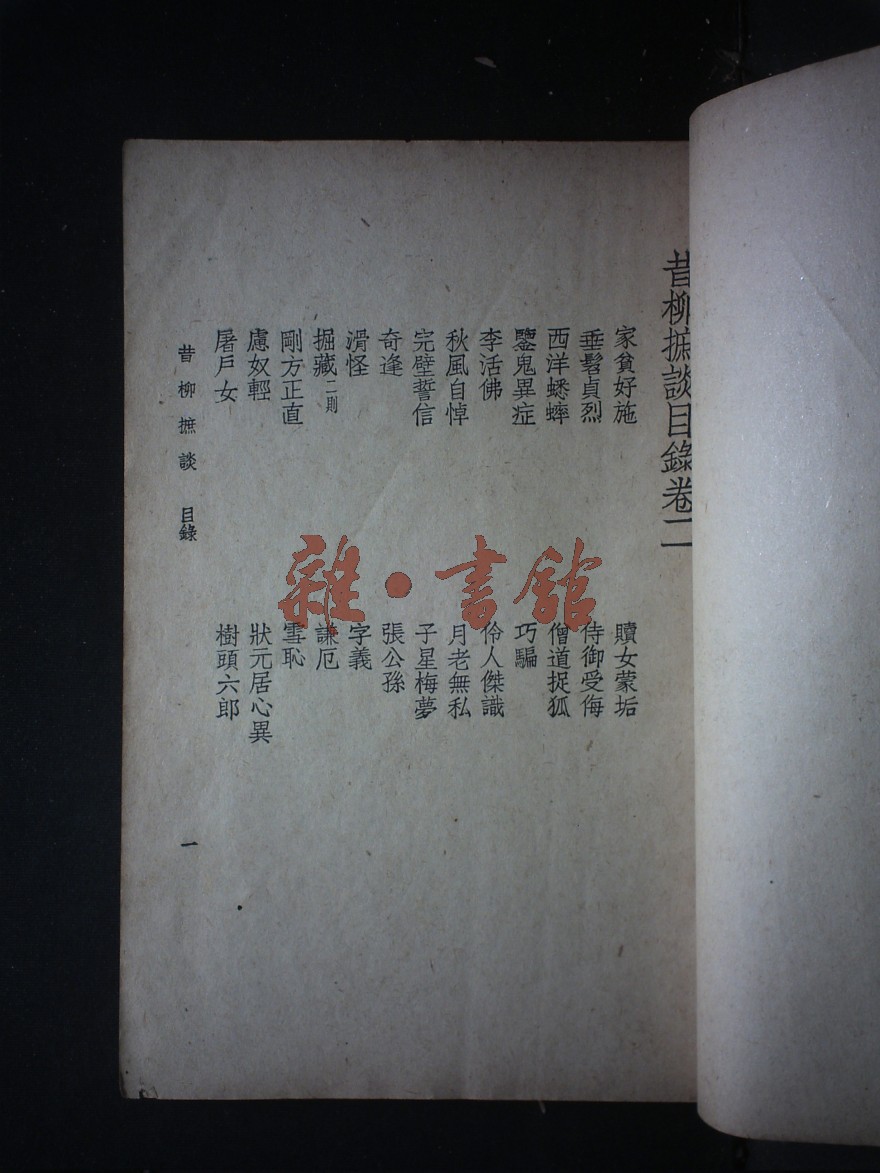 昔柳摭談目錄卷二
家貧好施
贖女蒙垢
垂髫貞烈
侍御受侮
西洋蟋蟀
僧道捉狐
鑿鬼異症
巧騙
李活佛
伶人傑識
秋風自悼
月老無私
完璧誓信
子星梅夢
奇逢
張公孫
滑怪
字義
掘藏二則
謙厄
剛方正直
雪恥
慮奴輕
狀元居心異
屠戶女
樹頭六郎
昔柳摭談 目錄
一
雜·書館